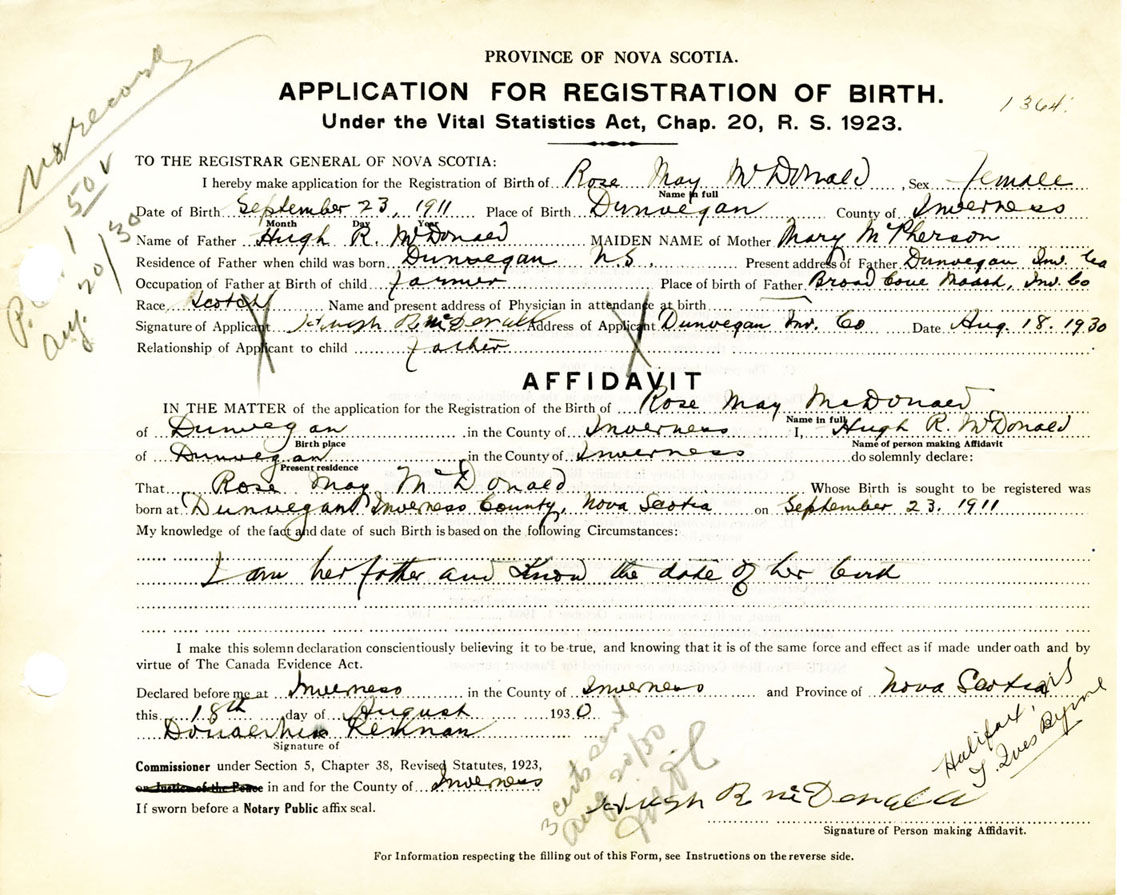 PROVINCE OF NOVA SCOTIA.
APPLICATION FOR REGISTRATION OF BIRTH.
1364.
Under the Vital Statistics Act, Chap. 20, R. S. 1923.
no record
P. 1 50
Aug. 20/30
TO THE REGISTRAR GENERAL OF NOVA SCOTIA:
I hereby make application for the Registration of Birth of Rose May McDonald, Sex female
Name in full
Date of Birth September 23, 1911 Place of Birth Dunvegan County of Inverness
Month Day Year
Name of Father Hugh R. McDonald MAIDEN NAME of Mother Mary McPherson
Residence of Father when child was born Dunvegan N.S. Present address of Father Dunvegan Inv. Co
Occupation of Father at Birth of child farmer Place of birth of Father Broad Cove Marsh, Inv. Co
Race Scotch Name and present address of Physician in attendance at birth
Signature of Applicant Hugh R McDonald Address of Applicant Dunvegan Inv. Co Date Aug. 18. 1930
Relationship of Applicant to child father
AFFIDAVIT
IN THE MATTER of the application for the Registration of the Birth of Rose May McDonald
Name in full
of Dunvegan in the County of Inverness I, Hugh R. McDonald
Birth place Name of person making Affidavit
of Dunvegan in the County of Inverness do solemnly declare:
Present residence
That Rose May McDonald Whose Birth is sought to be registered was
born at Dunvegan Inverness County, Nova Scotia on September 23. 1911
My knowledge of the fact and date of such Birth is based on the following Circumstances:
I am her father and know the date of her
I make this solemn declaration conscientiously believing it to be true, and knowing that it is of the same force and effect as if made under oath and by
virtue of The Canada Evidence Act.
Declared before me at Inverness in the County of Inverness and Province of Nova Scotia
this 18th day of August 1930
Signature of
Commissioner under Section 5, Chapter 38, Revised Statutes, 1923,
or Justice of the Peace in and for the County of Inverness
If sworn before a Notary Public affix seal.
3 certs sent
Aug 20/30
Halifax,
Hugh R McDonald
Signature of Person making Affidavit.
For Information respecting the filling out of this Form, see Instructions on the reverse side.